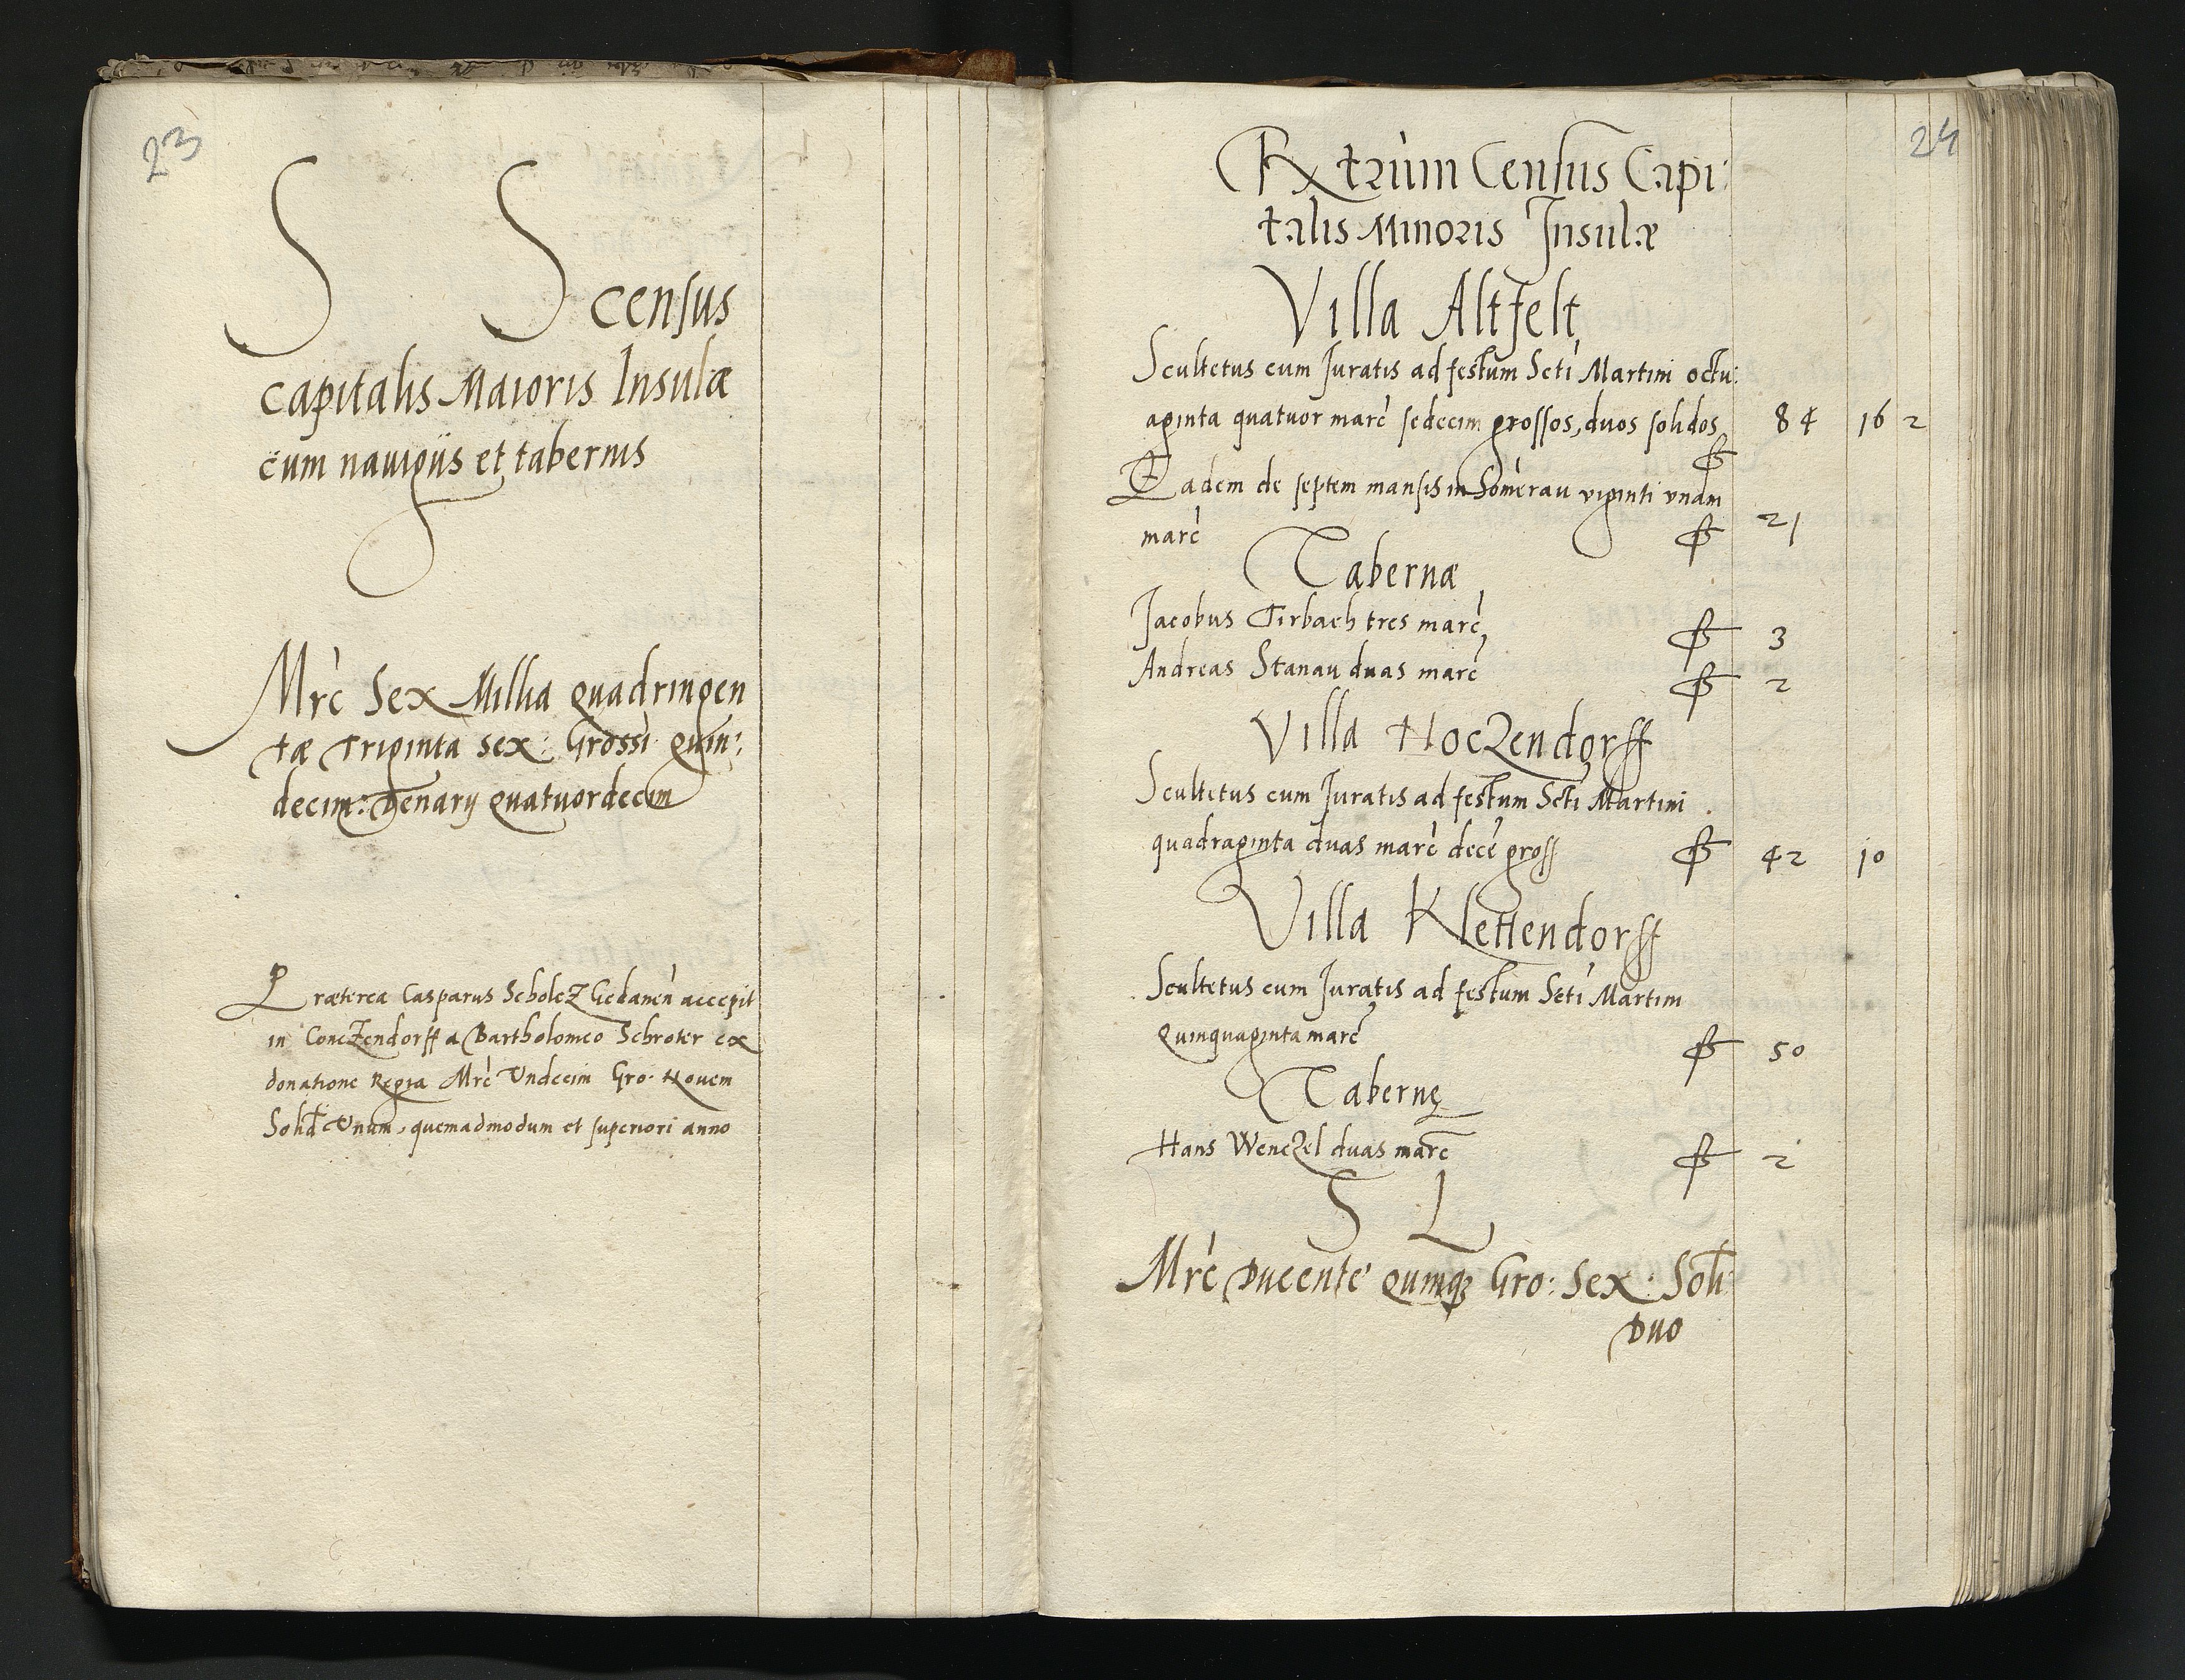 23
S S census
capitalis Maioris Insulæ
cum nauigiis et tabernis
Mrc Sex Millia quadringen
tæ Triginta sex: Grossi quin:
decim: Denarij quatuordecim
Præterea Casparus Scholcz Gedanen accepit
in Conczendorff a Bartholomeo Schroter ex
donatione Regia Mrc Undecim Gro. Nouem
Solid Unum, quemadmodum et superiori anno
24
Rxtrum Census Capi:
talis Minoris Insulæ
Villa Altfelt
Scultetus cum Juratis ad festum Scti Martini octu:
aginta quatuor marc sedecim grossos, duos solidos 84 16 2
Eadem de septem mansis in Somerau viginti vnam
marc 21
Tabernæ
Jacobus Tirbach tres marc 3
Andreas Stanau duas marc 2
Villa Noczendorff
Scultetus cum Juratis ad festum Scti Martini
quadraginta duas marc dece gross 42 10
Villa Klettendorff
Scultetus cum Juratis ad festum Scti Martini
Quinquaginta marc 50
Tabernę
Hans Wenczel duas marc 2
S L
Mrc Ducente quinq Gro: Sex: Soli
Duo